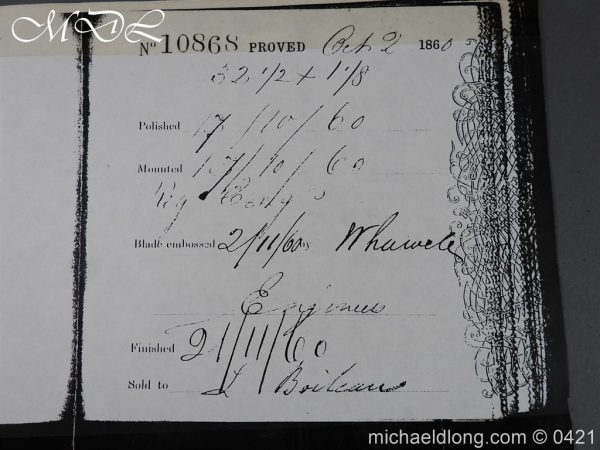 MDL
No 10868 PROVED Oct 2 1860
32 1/2 + 1 1/8
Polished 17/10/60
Mounted 17/10/60
Blade embossed 2/11/60 by
Engineer
Finished 21/11/60
Sold to Boileau
michaeldlong.com © 0421